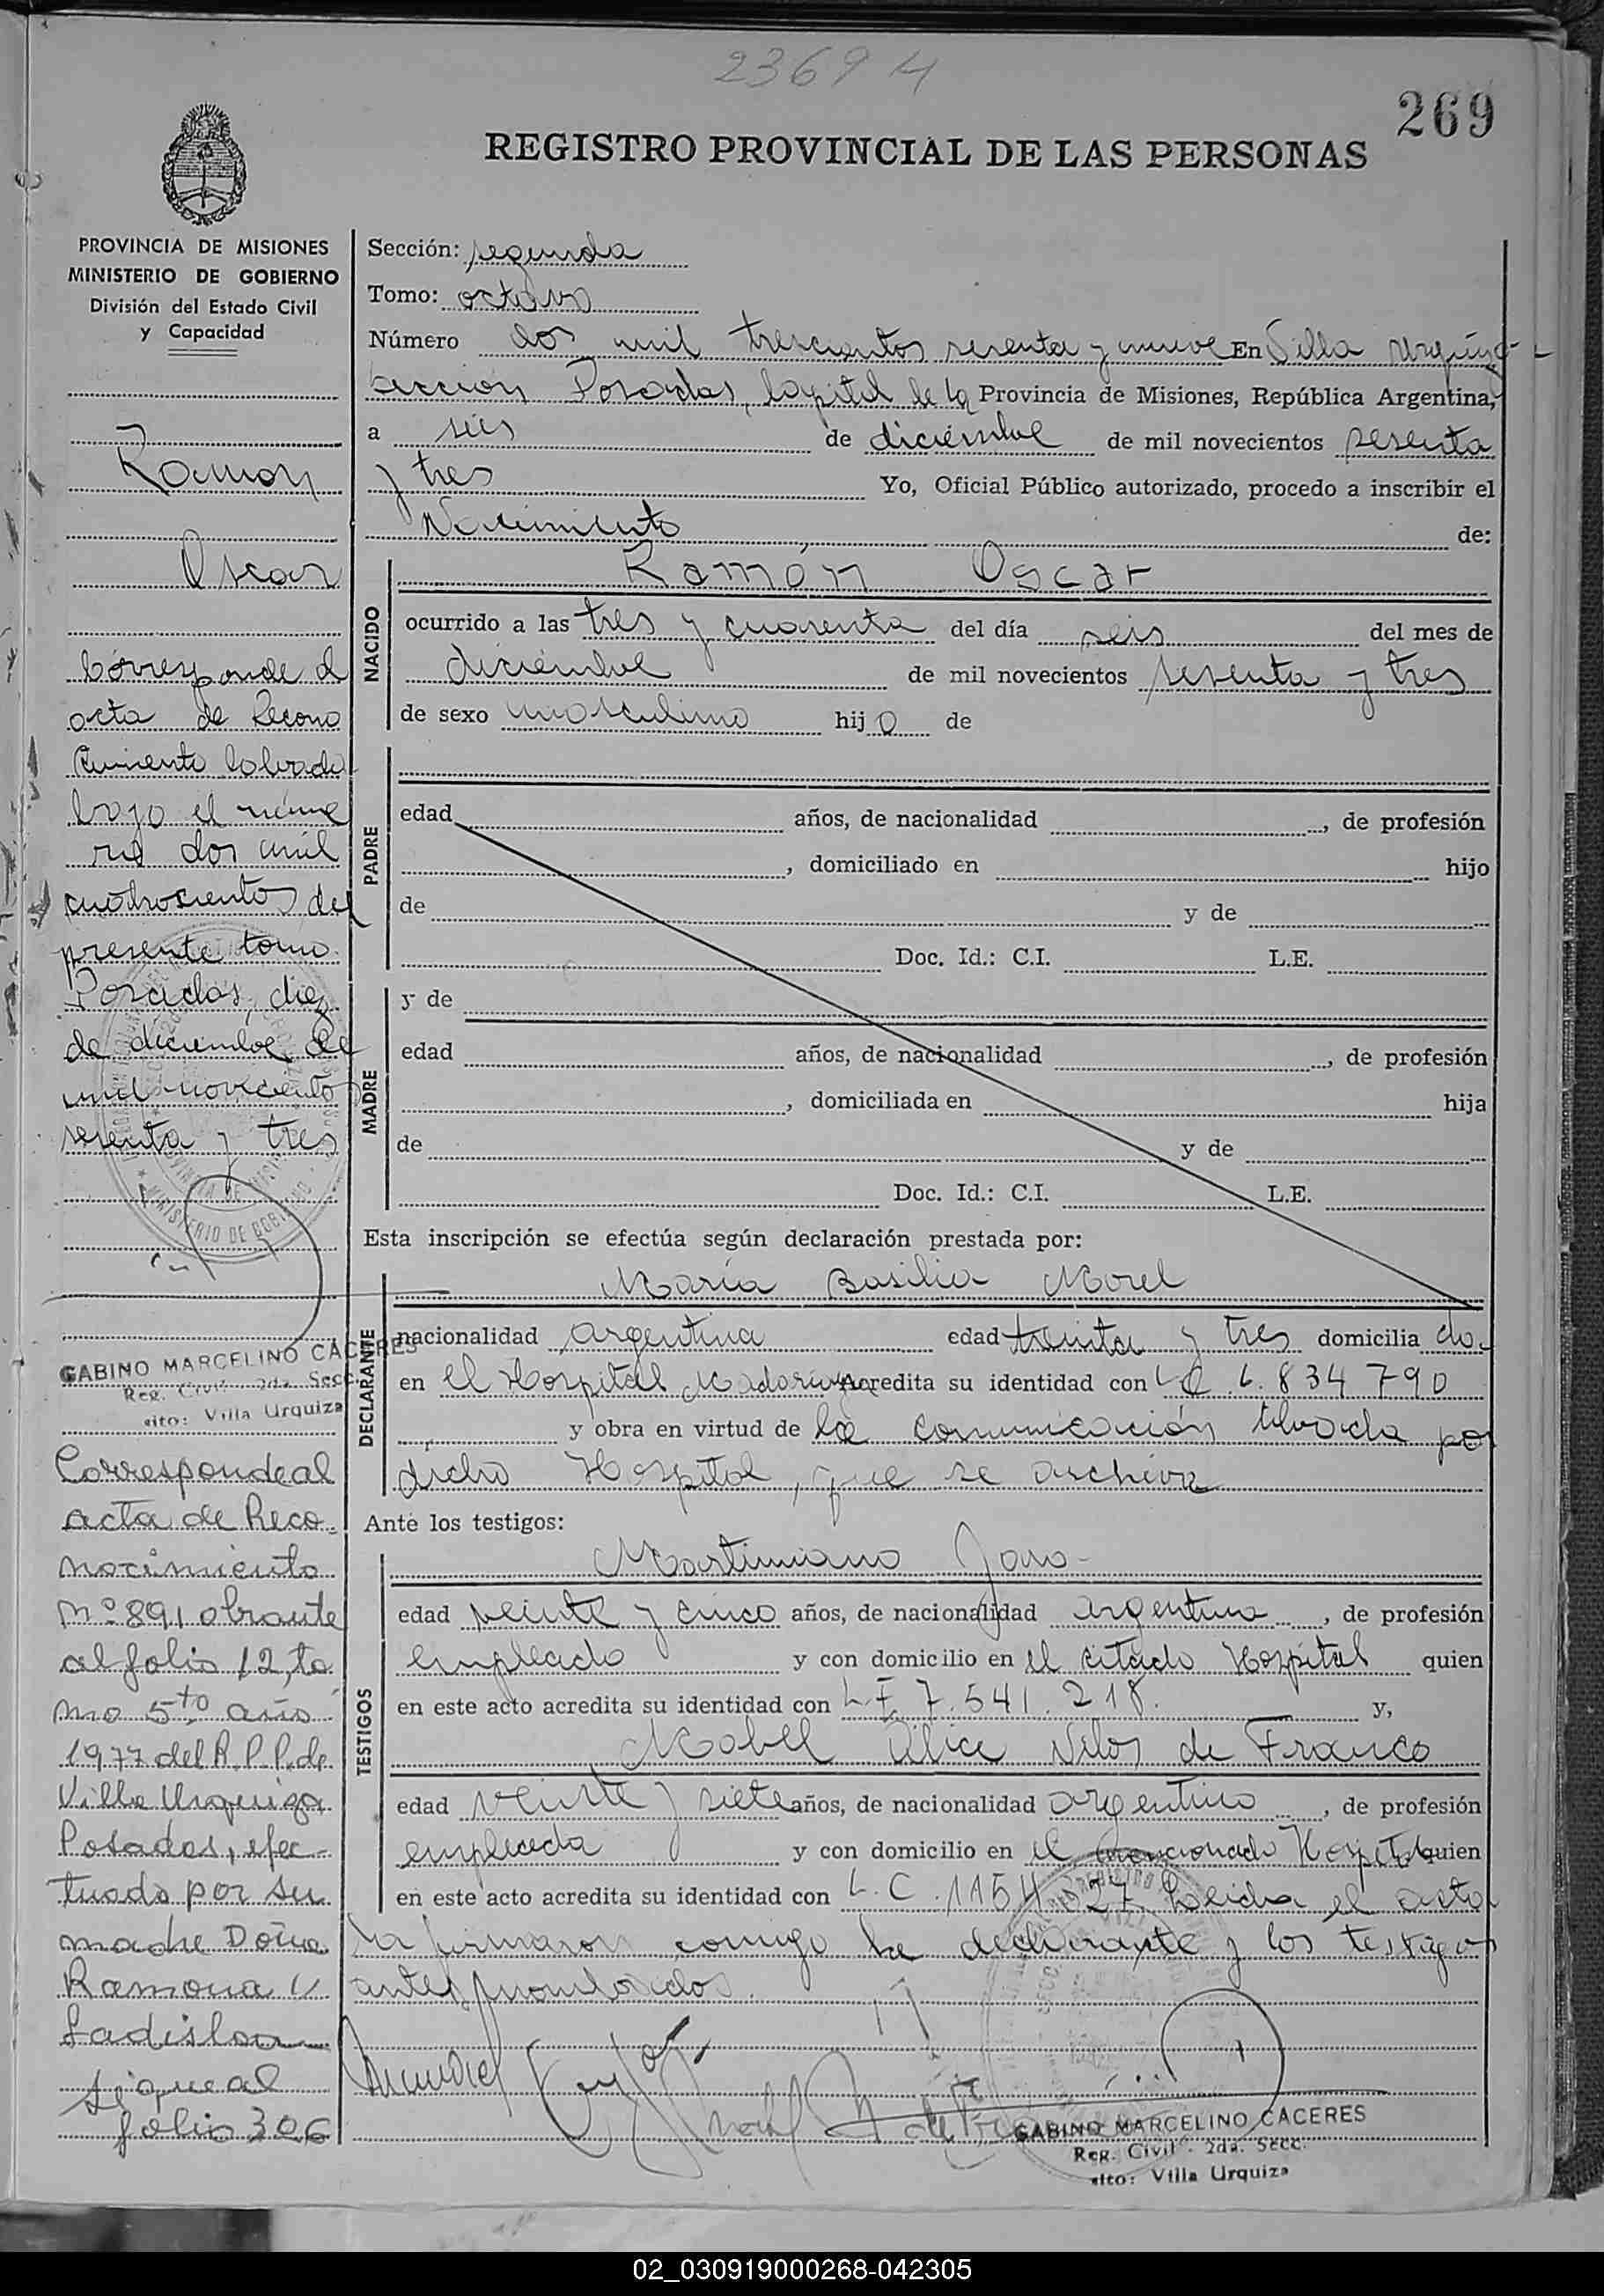 2369 4
269
REGISTRO PROVINCIAL DE LAS PERSONAS
PROVINCIA DE MISIONES
MINISTERIO DE GOBIERNO
División del Estado Civil
y Capacidad
Ramon
Oscar
Corresponde al
acta de Recono
cimiento labrada
bajo el núme
ro dos mil
cuatrocientos del
presente tomo
Posadas, diez
de diciembre de
mil novecientos
sesenta y tres
MINISTERIO DE GOBIERNO
GABINO MARCELINO CACERES
Reg. Civil 2da. Secc.
sito: Villa Urquiza
Corresponde al
acta de Reco-
nocimiento
Nº 891 obrante
al folio 12, to
mo 5to año
1977 del R.P.P. de
Villa Urquiza
Posadas, efec-
tuado por su
madre Doña
Ramona
Ladislaa
sigue al
folio 306
Sección: segunda
Tomo: octavo
Número dos mil trescientos sesenta y nueve En Villa Urquiza
sección Posadas, Capital de la Provincia de Misiones, República Argentina,
a seis de diciembre de mil novecientos sesenta
y tres Yo, Oficial Público autorizado, procedo a inscribir el
Nacimiento de:
NACIDO
Ramón Oscar
ocurrido a las tres y cuarenta del día seis del mes de
diciembre de mil novecientos sesenta y tres
de sexo masculino hijo de
PADRE
edad años, de nacionalidad , de profesión
, domiciliado en hijo
de y de
Doc. Id.: C.I. L.E.
MADRE
y de
edad años, de nacionalidad , de profesión
, domiciliada en hija
de y de
Doc. Id.: C.I. L.E.
Esta inscripción se efectúa según declaración prestada por:
DECLARANTE
María Basilia Morel
nacionalidad argentina edad treinta y tres domicilia da
en el Hospital Madariaga acredita su identidad con L.C. 6.834790
y obra en virtud de la comunicación librada por
dicho Hospital, que se archiva
Ante los testigos:
TESTIGOS
Martimiano
edad veinte y cinco años, de nacionalidad argentina , de profesión
empleado y con domicilio en el citado Hospital quien
en este acto acredita su identidad con L.E. 7.541.218. y,
Mabel Alice de Franco
edad veinte y siete años, de nacionalidad argentino , de profesión
empleada y con domicilio en el mencionado Hospital quien
en este acto acredita su identidad con L.C. Leida el acta
la firmaron conmigo la declarante y los testigos
antes nombrados.
GABINO MARCELINO CACERES
Reg. Civil 2da. Secc.
sito: Villa Urquiza
02_030919000268-042305